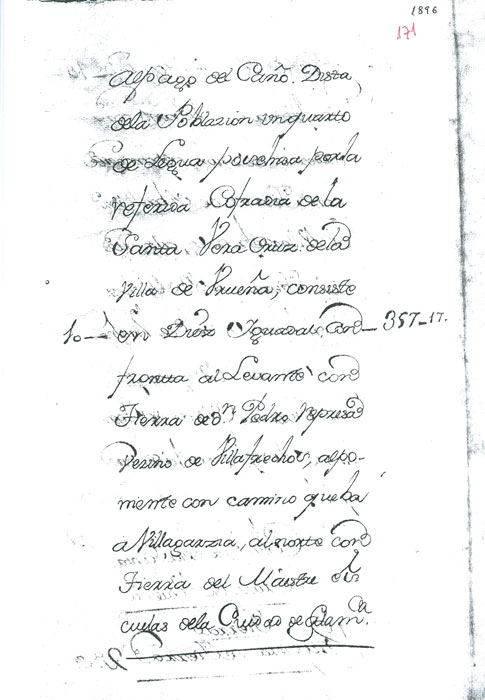 1896
171
Al pago del Caño. Dista
dela Poblazion un quarto
de legua posehira por la
referida Cofradia de la
Santa Vera Cruz dela
Villa de Urueña, consiste
10 — en Diez Iguadas, con — 357-17.
fronta al Levante con
Tierra de Dn Pedro Represa
Vezino de Villafrechos, alpo-
niente con camino queba
a Villagarzia, al norte con
Tierra del Maestre Es
cuelas dela Ciudad de Salamca.